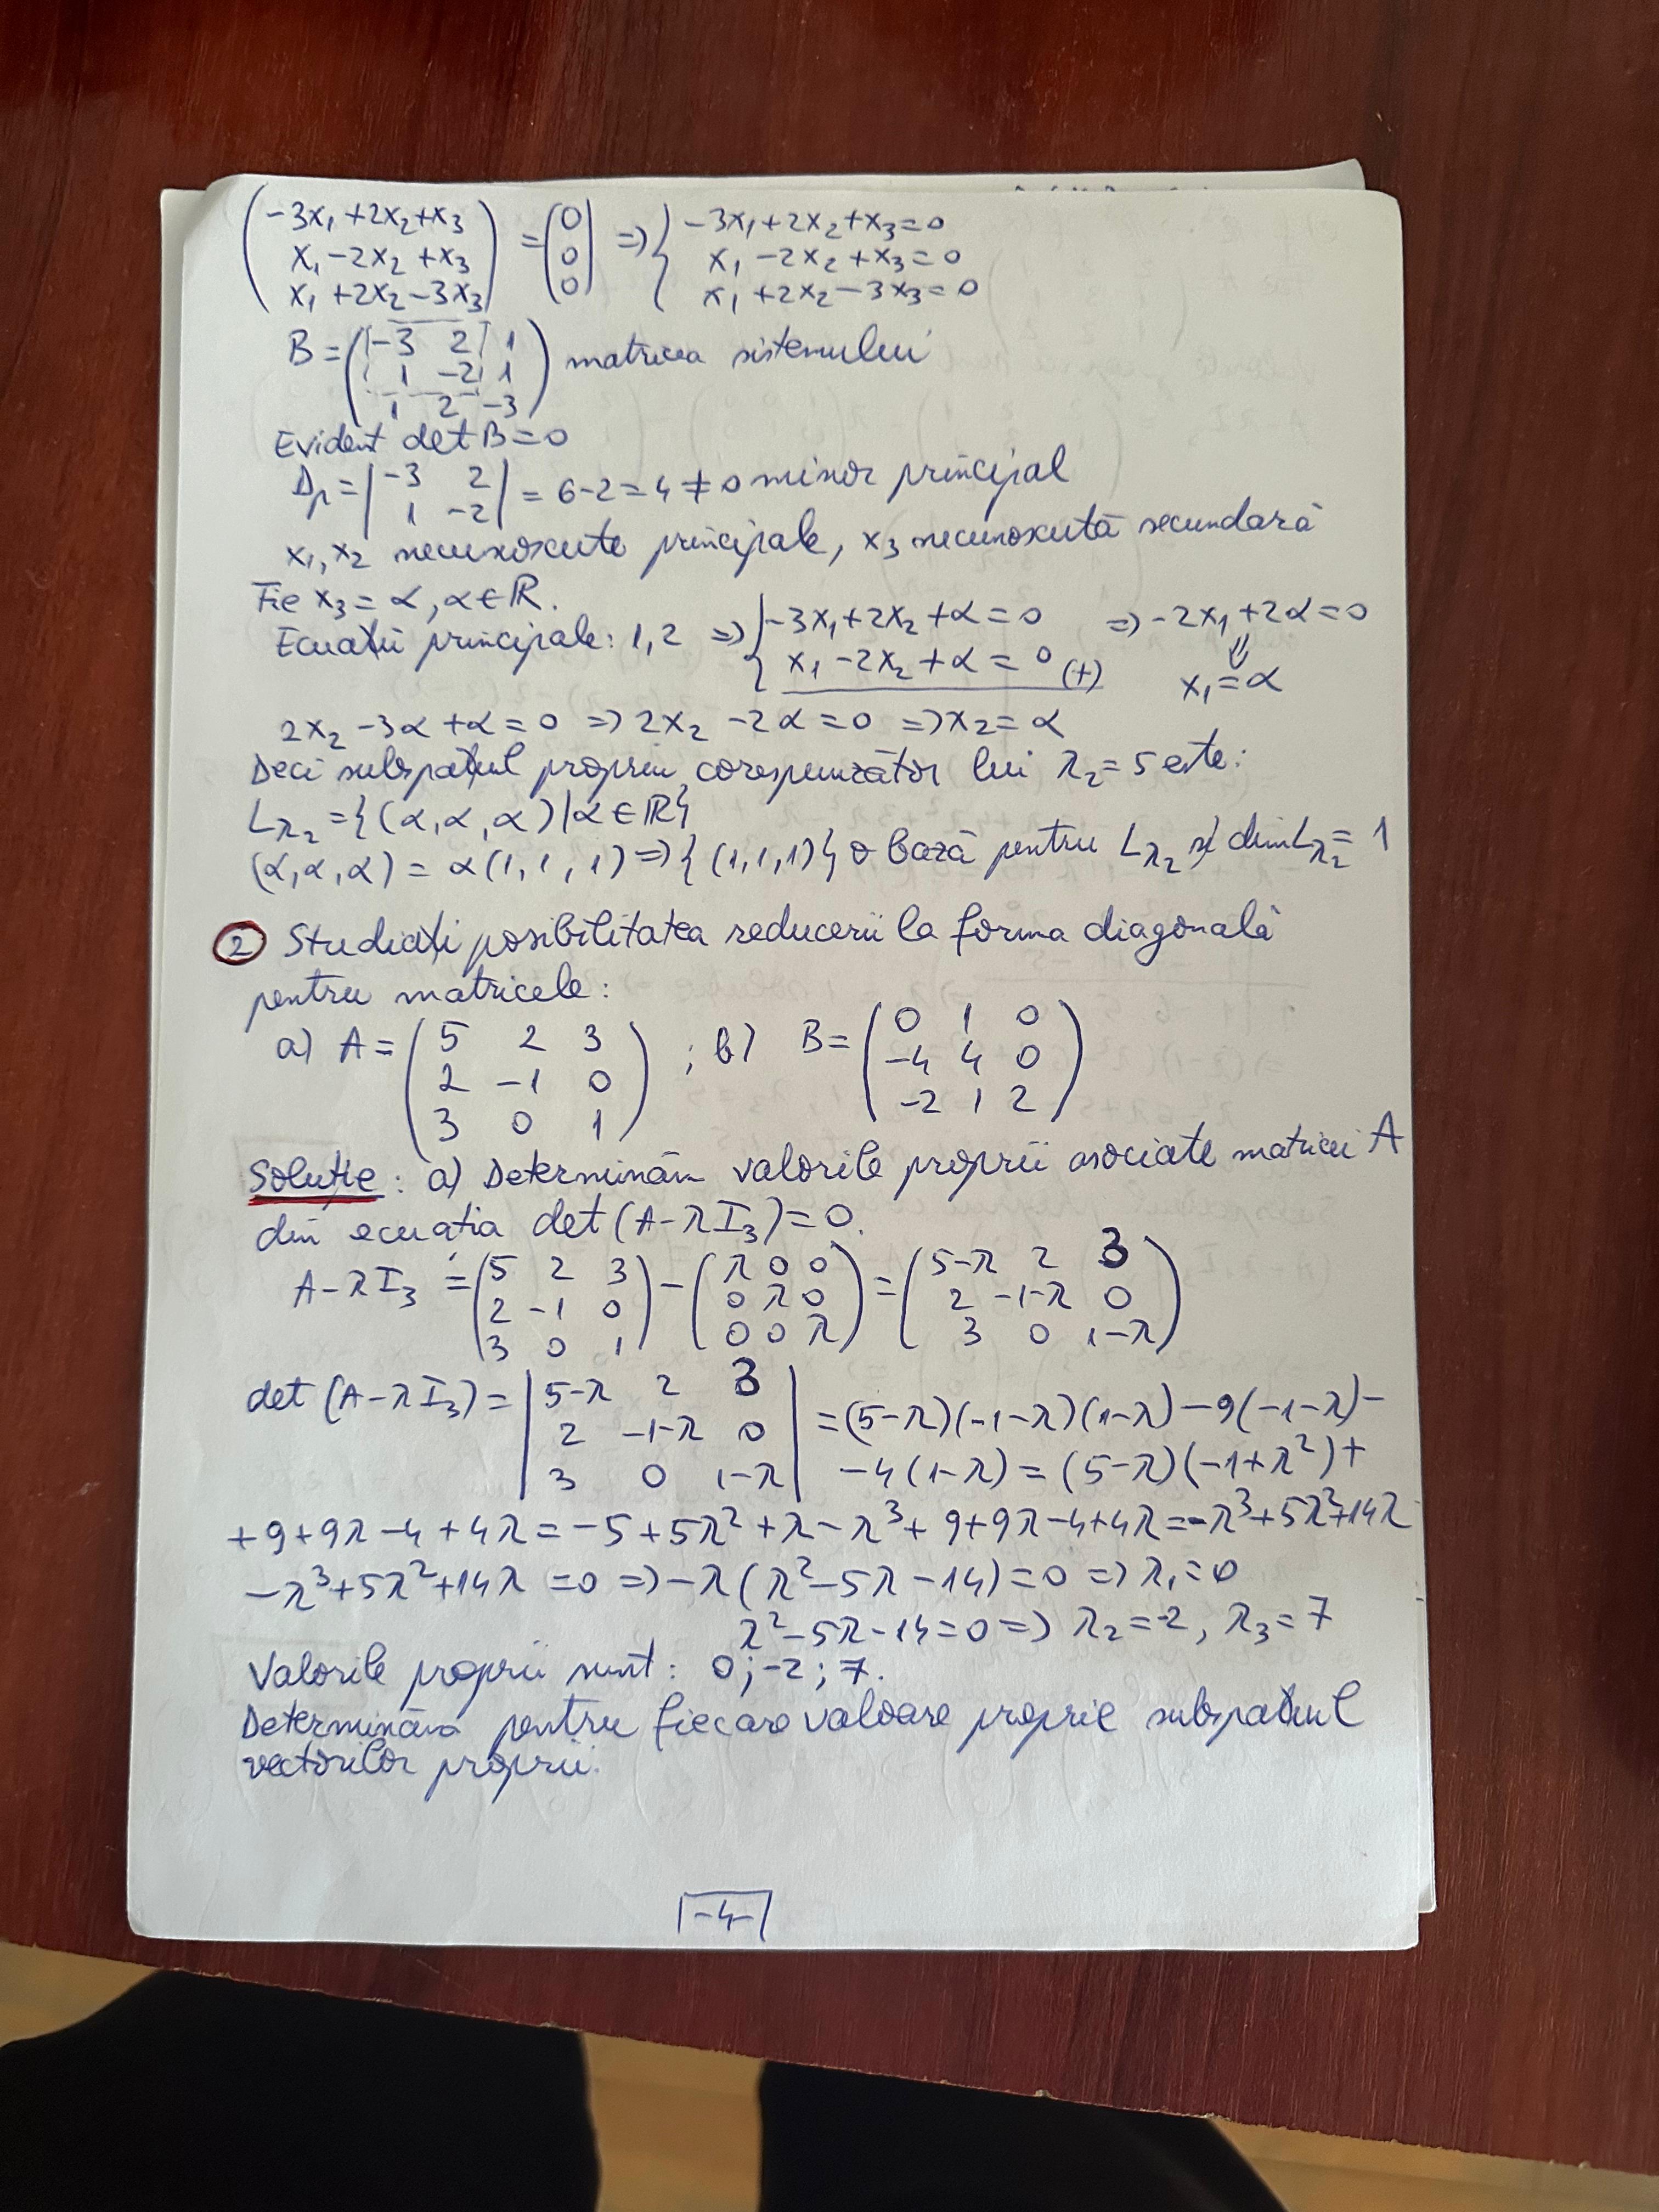 (-3x₁+2x₂+x₃ ; x₁-2x₂+x₃ ; x₁+2x₂-3x₃) = (0 ; 0 ; 0) => { -3x₁+2x₂+x₃=0 ; x₁-2x₂+x₃=0 ; x₁+2x₂-3x₃=0
B = (-3 2 1 ; 1 -2 1 ; 1 2 -3) matricea sistemului
Evident det B=0
Δp = |-3 2 ; 1 -2| = 6-2=4≠0 minor principal
x₁, x₂ necunoscute principale, x₃ necunoscută secundară
Fie x₃=α, α∈ℝ.
Ecuații principale: 1,2 => { -3x₁+2x₂+α=0 ; x₁-2x₂+α=0 (+) => -2x₁+2α=0
⇓
x₁=α
2x₂-3α+α=0 => 2x₂-2α=0 => x₂=α
Deci subspațiul propriu corespunzător lui λ₂=5 este:
L_λ₂={(α,α,α)|α∈ℝ}
(α,α,α) = α(1,1,1) => {(1,1,1)} o bază pentru L_λ₂ și dim L_λ₂=1
② Studiați posibilitatea reducerii la forma diagonală
pentru matricele:
a) A = (5 2 3 ; 2 -1 0 ; 3 0 1) ; b) B= (0 1 0 ; -4 4 0 ; -2 1 2)
Soluție: a) Determinăm valorile proprii asociate matricei A
din ecuația det(A-λI₃)=0.
A-λI₃ = (5 2 3 ; 2 -1 0 ; 3 0 1) - (λ 0 0 ; 0 λ 0 ; 0 0 λ) = (5-λ 2 3 ; 2 -1-λ 0 ; 3 0 1-λ)
det(A-λI₃) = |5-λ 2 3 ; 2 -1-λ 0 ; 3 0 1-λ| = (5-λ)(-1-λ)(1-λ)-9(-1-λ)-
-4(1-λ) = (5-λ)(-1+λ²)+
+9+9λ-4+4λ=-5+5λ²+λ-λ³+9+9λ-4+4λ=-λ³+5λ²+14λ
-λ³+5λ²+14λ=0 => -λ(λ²-5λ-14)=0 => λ₁=0
λ²-5λ-14=0 => λ₂=-2, λ₃=7
Valorile proprii sunt: 0; -2; 7.
Determinăm pentru fiecare valoare proprie subspațiul
vectorilor proprii.
-4-